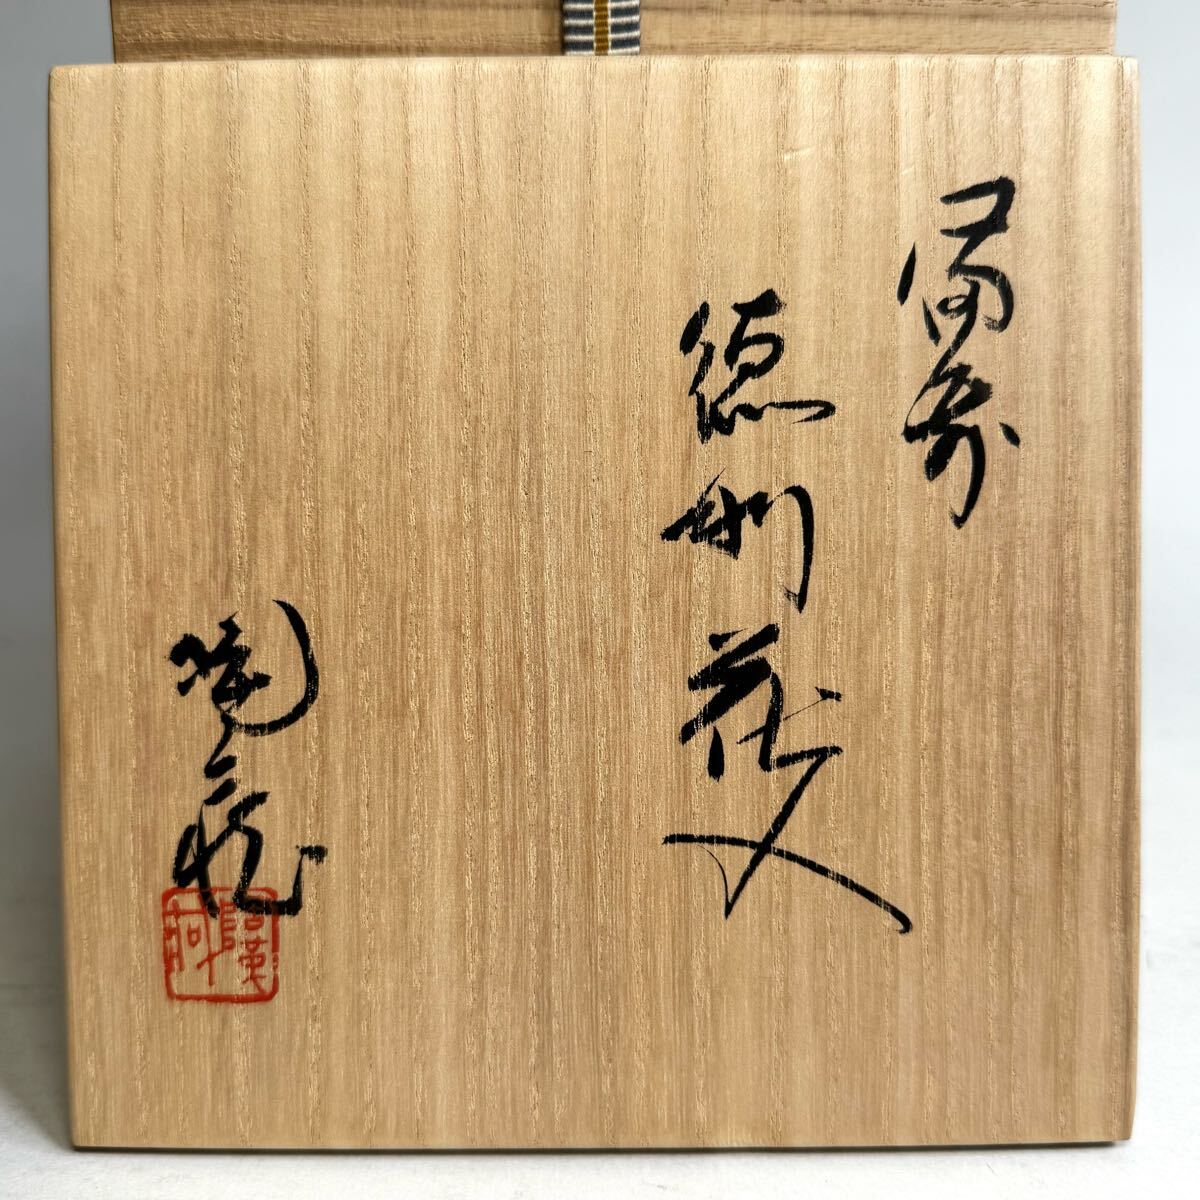 備前
徳利花入
陶彦